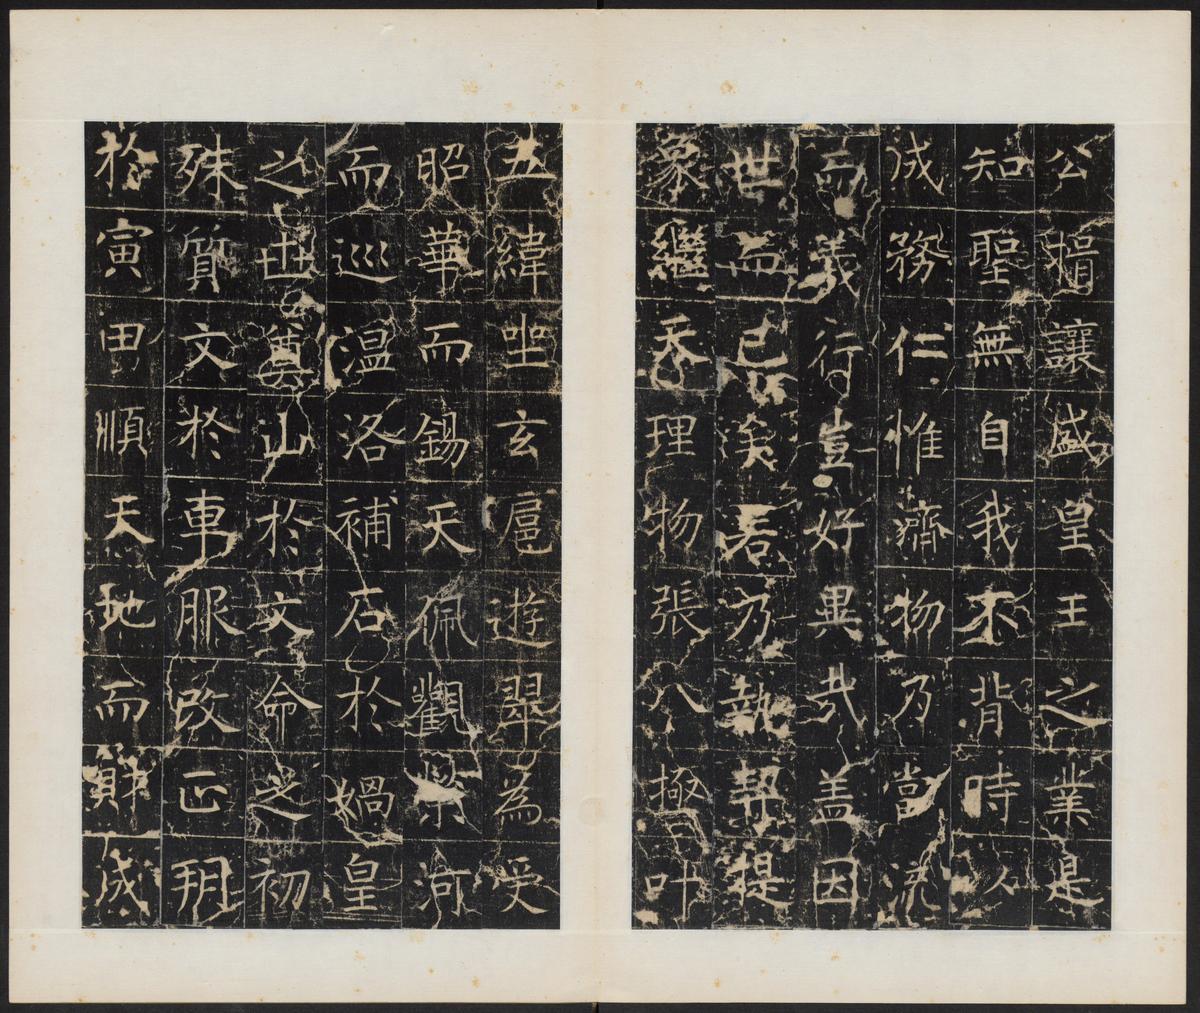 公揖讓盛皇王之業是
知聖無自我不背時以
成務仁惟濟物乃當流
而義行豈好異哉盖因
世而已矣若乃執契提
象繼天理物張八極叶
五緯坐玄扈遊翠為受
昭華而錫天佩觀榮河
而巡溫洛補石於媧皇
之世奠山於文命之初
殊質文於車服改正朔
於寅田順天地而節成